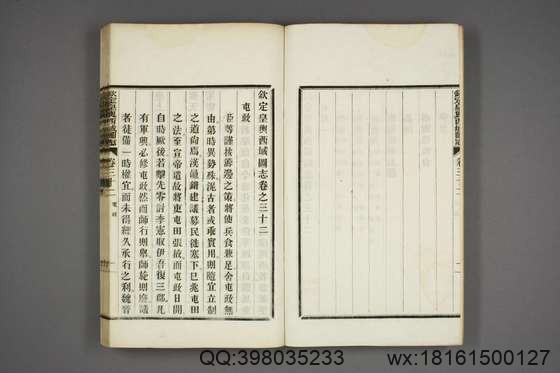 欽定皇輿西域圖志卷之三十二
屯政
臣等謹按籌邊之策將使兵食兼足舍屯政無
由第時異勢殊泥古者或乖實用則隨宜立制
之道尚焉漢鼂錯建議募民徙塞下已兆屯田
之法至宣帝遣故將吏屯田張掖而屯政日開
自時厥後若擊先零討李憲取伊吾復三郡凡
有軍興必修屯政然而師行則舉師旋則廢議
者徒備一時權宜而未得經久承行之利魏晉
欽定皇輿西域圖志
卷三十二
屯政
一
QQ:398035233
wx:18161500127